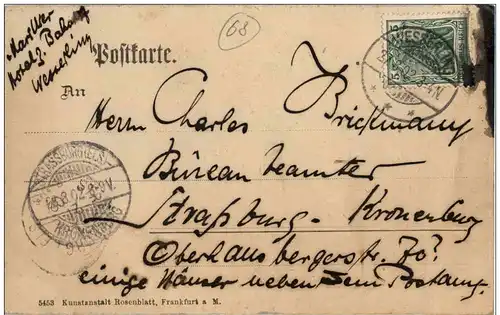 68
Postkarte.
Hotel z. Bahnhof
Wesserling
An
Herrn Charles Brickmann
Büreaubeamter
Straßburg-Kronenburg
Oberhausbergerstr. 70?
einige Häuser neben dem Postamt.
5453 Kunstanstalt Rosenblatt, Frankfurt a M.